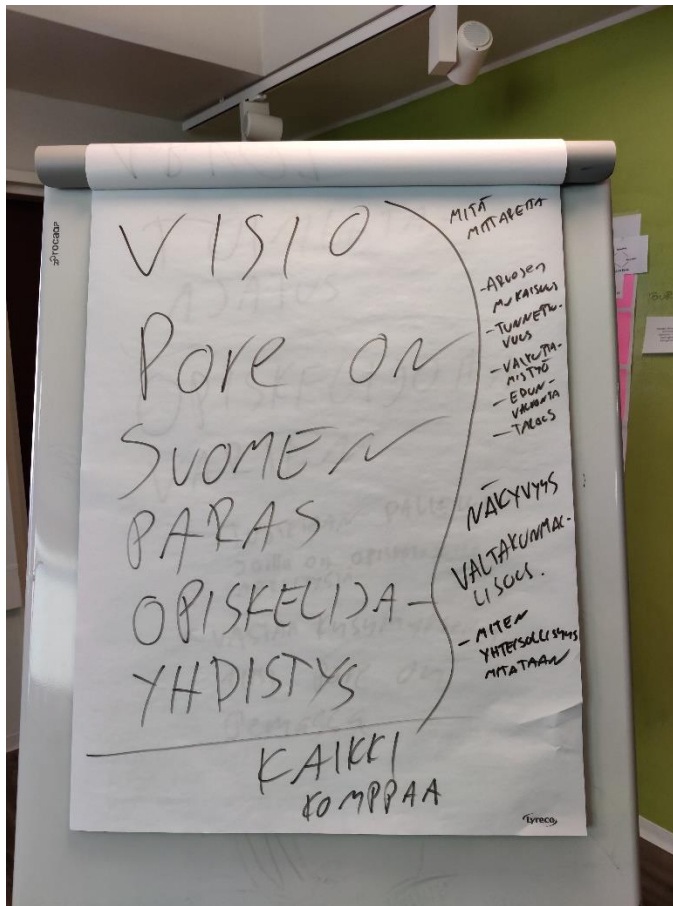 VISIO
Pore ON
SUOMEN
PARAS
OPISKELIJA-
YHDISTYS
KAIKKI
KOMPPAA
MITÄ
MITTAREITA
-ARVOJEN
MUKAISUUS
-TUNNETTU-
VUUS
-VAIKUTTA-
MISTYÖ
-EDUN-
VALVONTA
-TALOUS
NÄKYVYYS
VALTAKUNNAL-
LISUUS.
-MITEN
YHTEISÖLLISYYS
MITATAAN
rocada
Lyreco